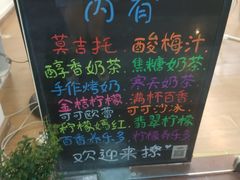 内有
莫吉托 酸梅汁
醇香奶茶 焦糖奶茶
手作烤奶 寒天奶茶
金桔柠檬 满杯百香
可可欧蕾 可可沙冰
柠檬嫣红 翡翠柠檬
百香养乐多 柠檬养乐多
欢迎来撩